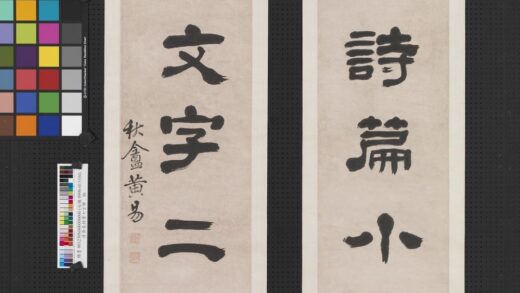 詩篇小
文字二
秋盦黃易